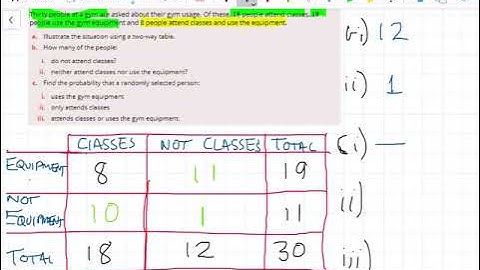 Thirty people at a gym are asked about their gym usage. Of these, 18 people attend classes, 19
people use the gym equipment and 8 people attend classes and use the equipment.
a. Illustrate the situation using a two-way table.
b. How many of the people:
i. do not attend classes?
ii. neither attend classes nor use the equipment?
c. Find the probability that a randomly selected person:
i. uses the gym equipment
ii. only attends classes
iii. attends classes or uses the gym equipment.
bi) 12
ii) 1
Ci) —
ii)
iii)
CLASSES NOT CLASSES TOTAL
EQUIPMENT 8 11 19
NOT
EQUIPMENT 10 1 11
TOTAL 18 12 30